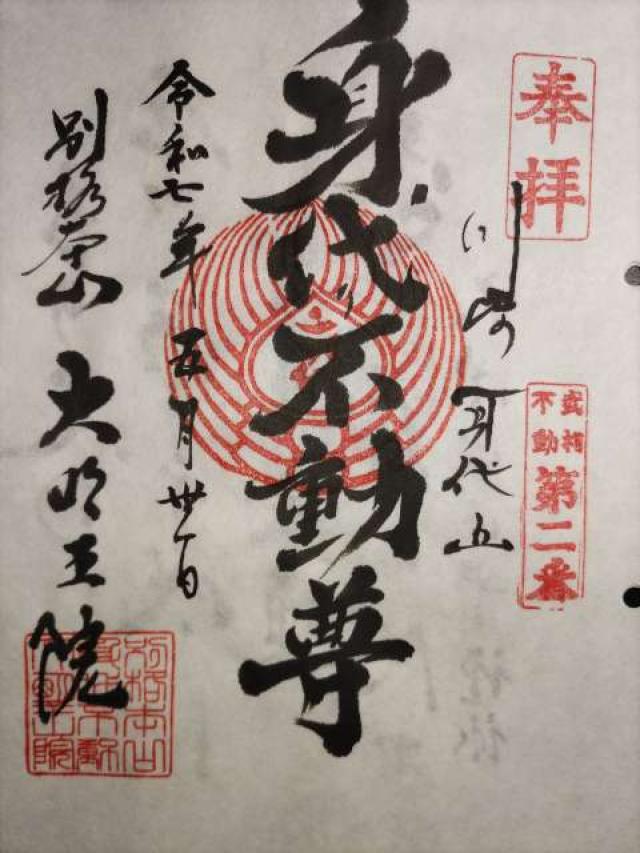 奉拝
武相不動
第二番
川崎 身代山
身代不動尊
令和七年五月卅一日
別格本山 大明王院